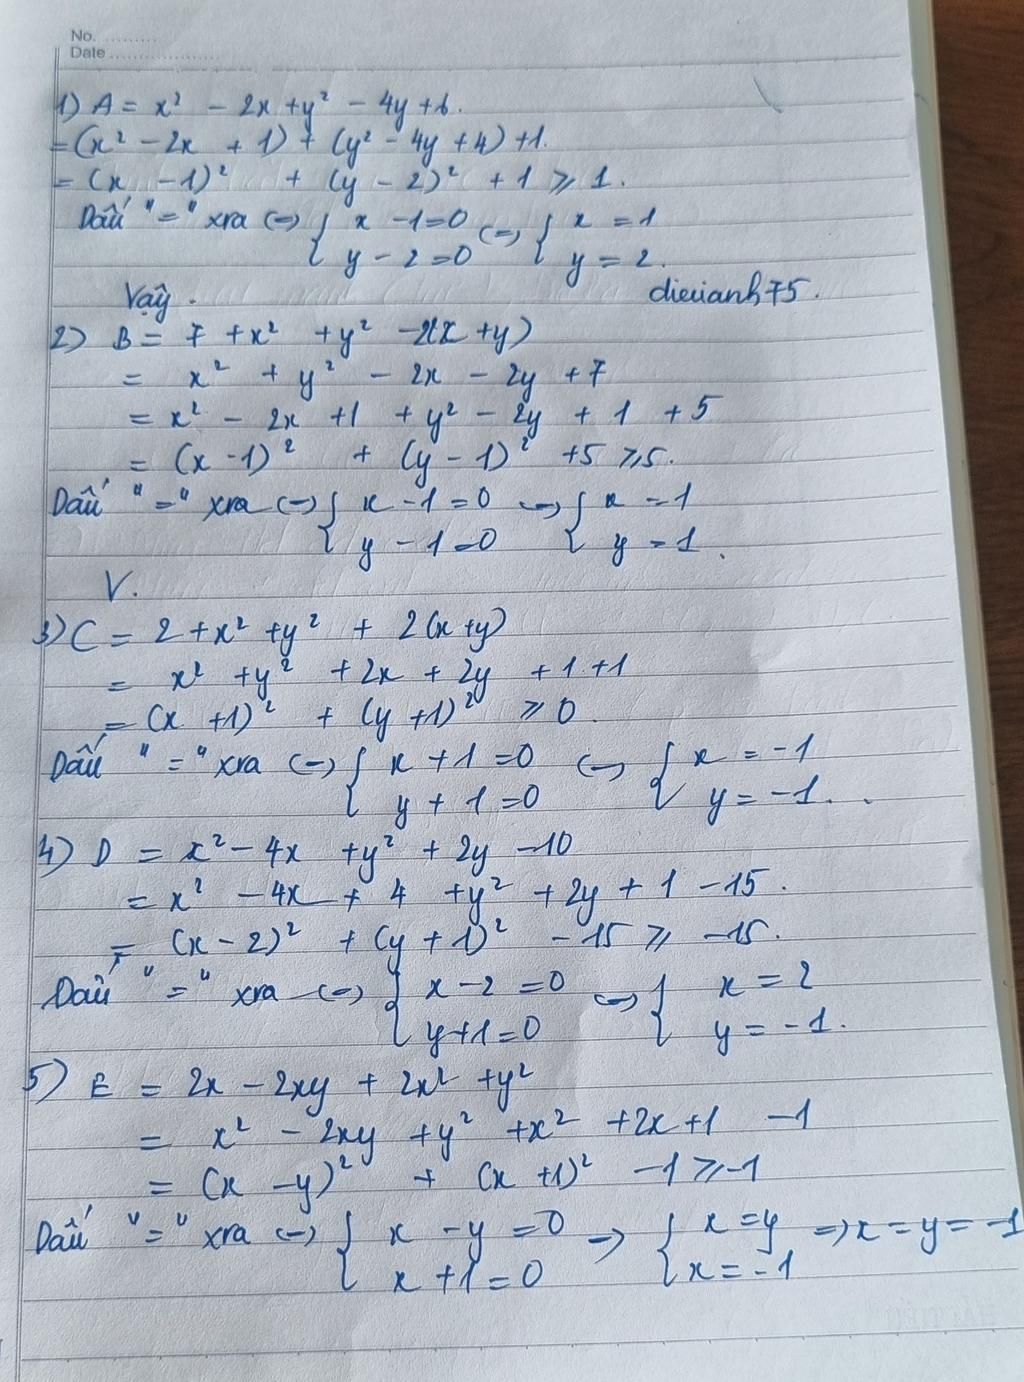 No. ..........
Date ....................
1) A = x² - 2x + y² - 4y + 6.
= (x² - 2x + 1) + (y² - 4y + 4) + 1.
= (x - 1)² + (y - 2)² + 1 ⩾ 1.
Dấu "=" xra <=> { x - 1 = 0 <=> { x = 1
y - 2 = 0 y = 2.
Vậy. dieuianh75.
2) B = 7 + x² + y² - 2(x + y)
= x² + y² - 2x - 2y + 7
= x² - 2x + 1 + y² - 2y + 1 + 5
= (x - 1)² + (y - 1)² + 5 ⩾ 5.
Dấu "=" xra <=> { x - 1 = 0 <=> { x = 1
y - 1 = 0 y = 1.
V.
3) C = 2 + x² + y² + 2(x + y)
= x² + y² + 2x + 2y + 1 + 1
= (x + 1)² + (y + 1)² ⩾ 0.
Dấu "=" xra <=> { x + 1 = 0 <=> { x = -1
y + 1 = 0 y = -1. .
4) D = x² - 4x + y² + 2y - 10
= x² - 4x + 4 + y² + 2y + 1 - 15.
= (x - 2)² + (y + 1)² - 15 ⩾ -15.
Dấu "=" xra <=> { x - 2 = 0 <=> { x = 2
y + 1 = 0 y = -1.
5) E = 2x - 2xy + 2x² + y²
= x² - 2xy + y² + x² + 2x + 1 - 1
= (x - y)² + (x + 1)² - 1 ⩾ -1
Dấu "=" xra <=> { x - y = 0 => { x = y => x = y = -1
x + 1 = 0 x = -1